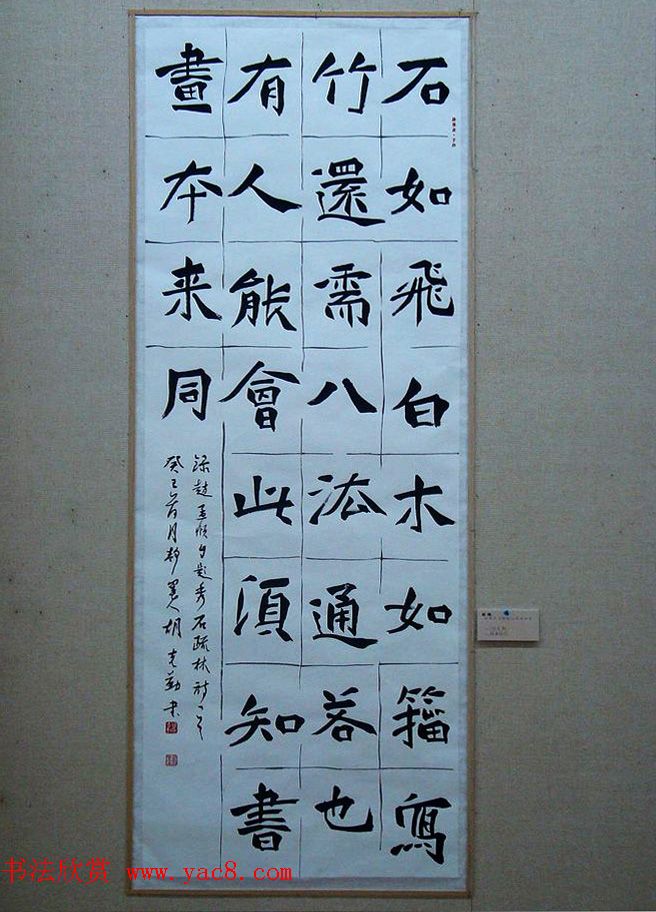 石如飛白木如籀寫
竹還需八法通若也
有人能會此須知書
畫本来同
录趙孟頫句題秀石疏林詩一首
癸巳月静人胡克勤书
书法欣赏 www.yac8.com